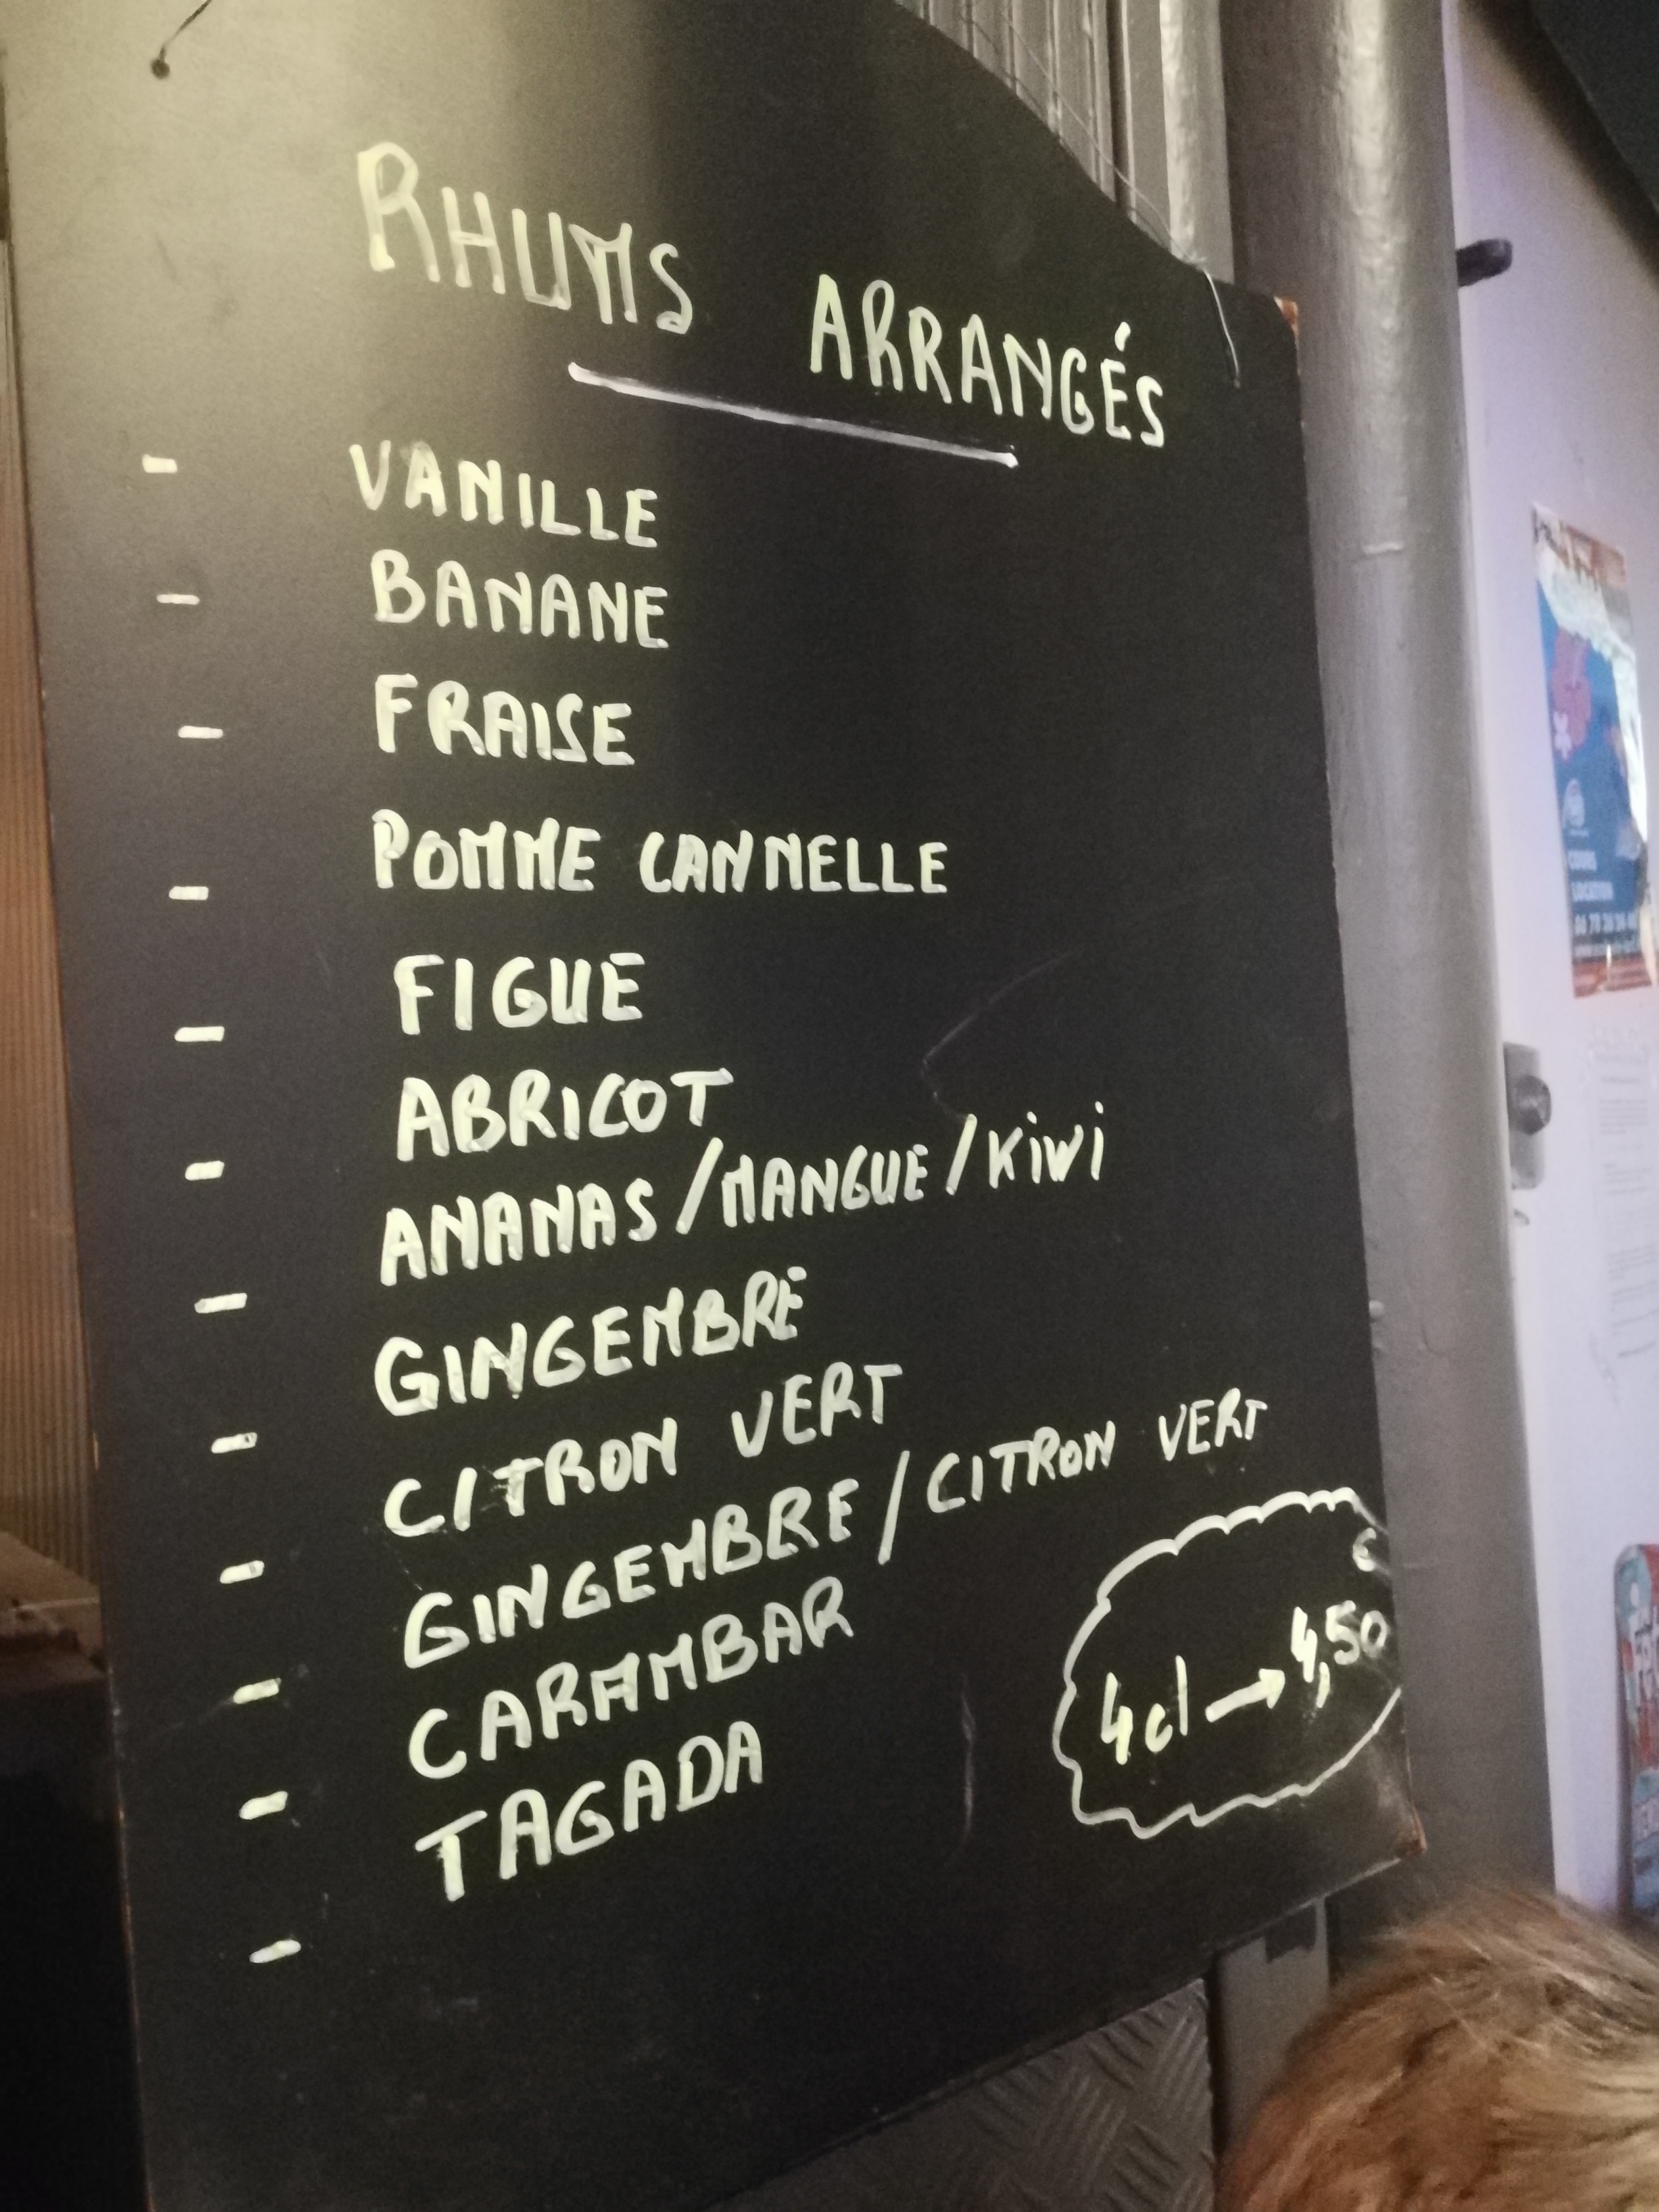 RHUMS ARRANGÉS
- VANILLE
- BANANE
- FRAISE
- POMME CANNELLE
- FIGUE
- ABRICOT
- ANANAS/MANGUE/KiWi
- GINGEMBRE
- CITRON VERT
- GINGEMBRE/CITRON VERT
- CARAMBAR
- TAGADA
4cl → 4,50
COURS
LOCATION